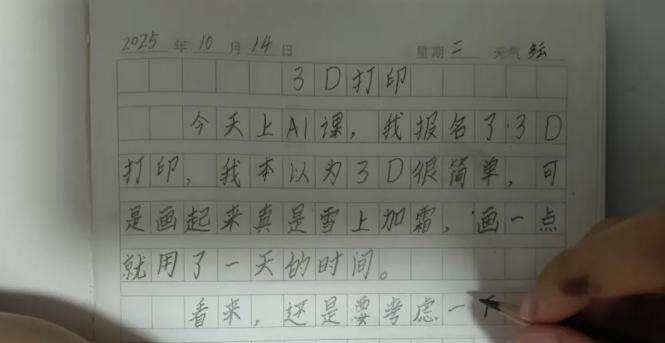 2025 年 10 月 14 日 星期 二 天气
3D打印
今天上AI课,我报名了·3D
打印,我本以为3D很简单,可
是画起来真是雪上加霜,画一点
就用了一天的时间。
看来,还是要考虑一下